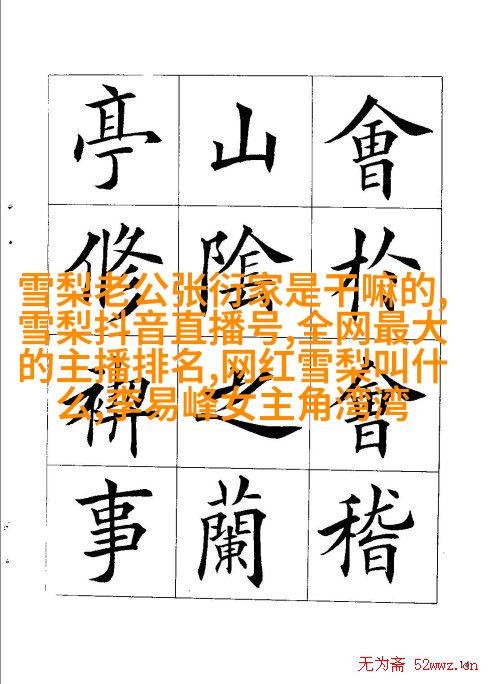 會扵會稽
山陰之蘭
亭修禊事
雪梨老公张衍家是干嘛的,
雪梨抖音直播号,全网最大
的主播排名,网红雪梨叫什
么,李易峰女主角湾湾
无为斋 52wwz.cn